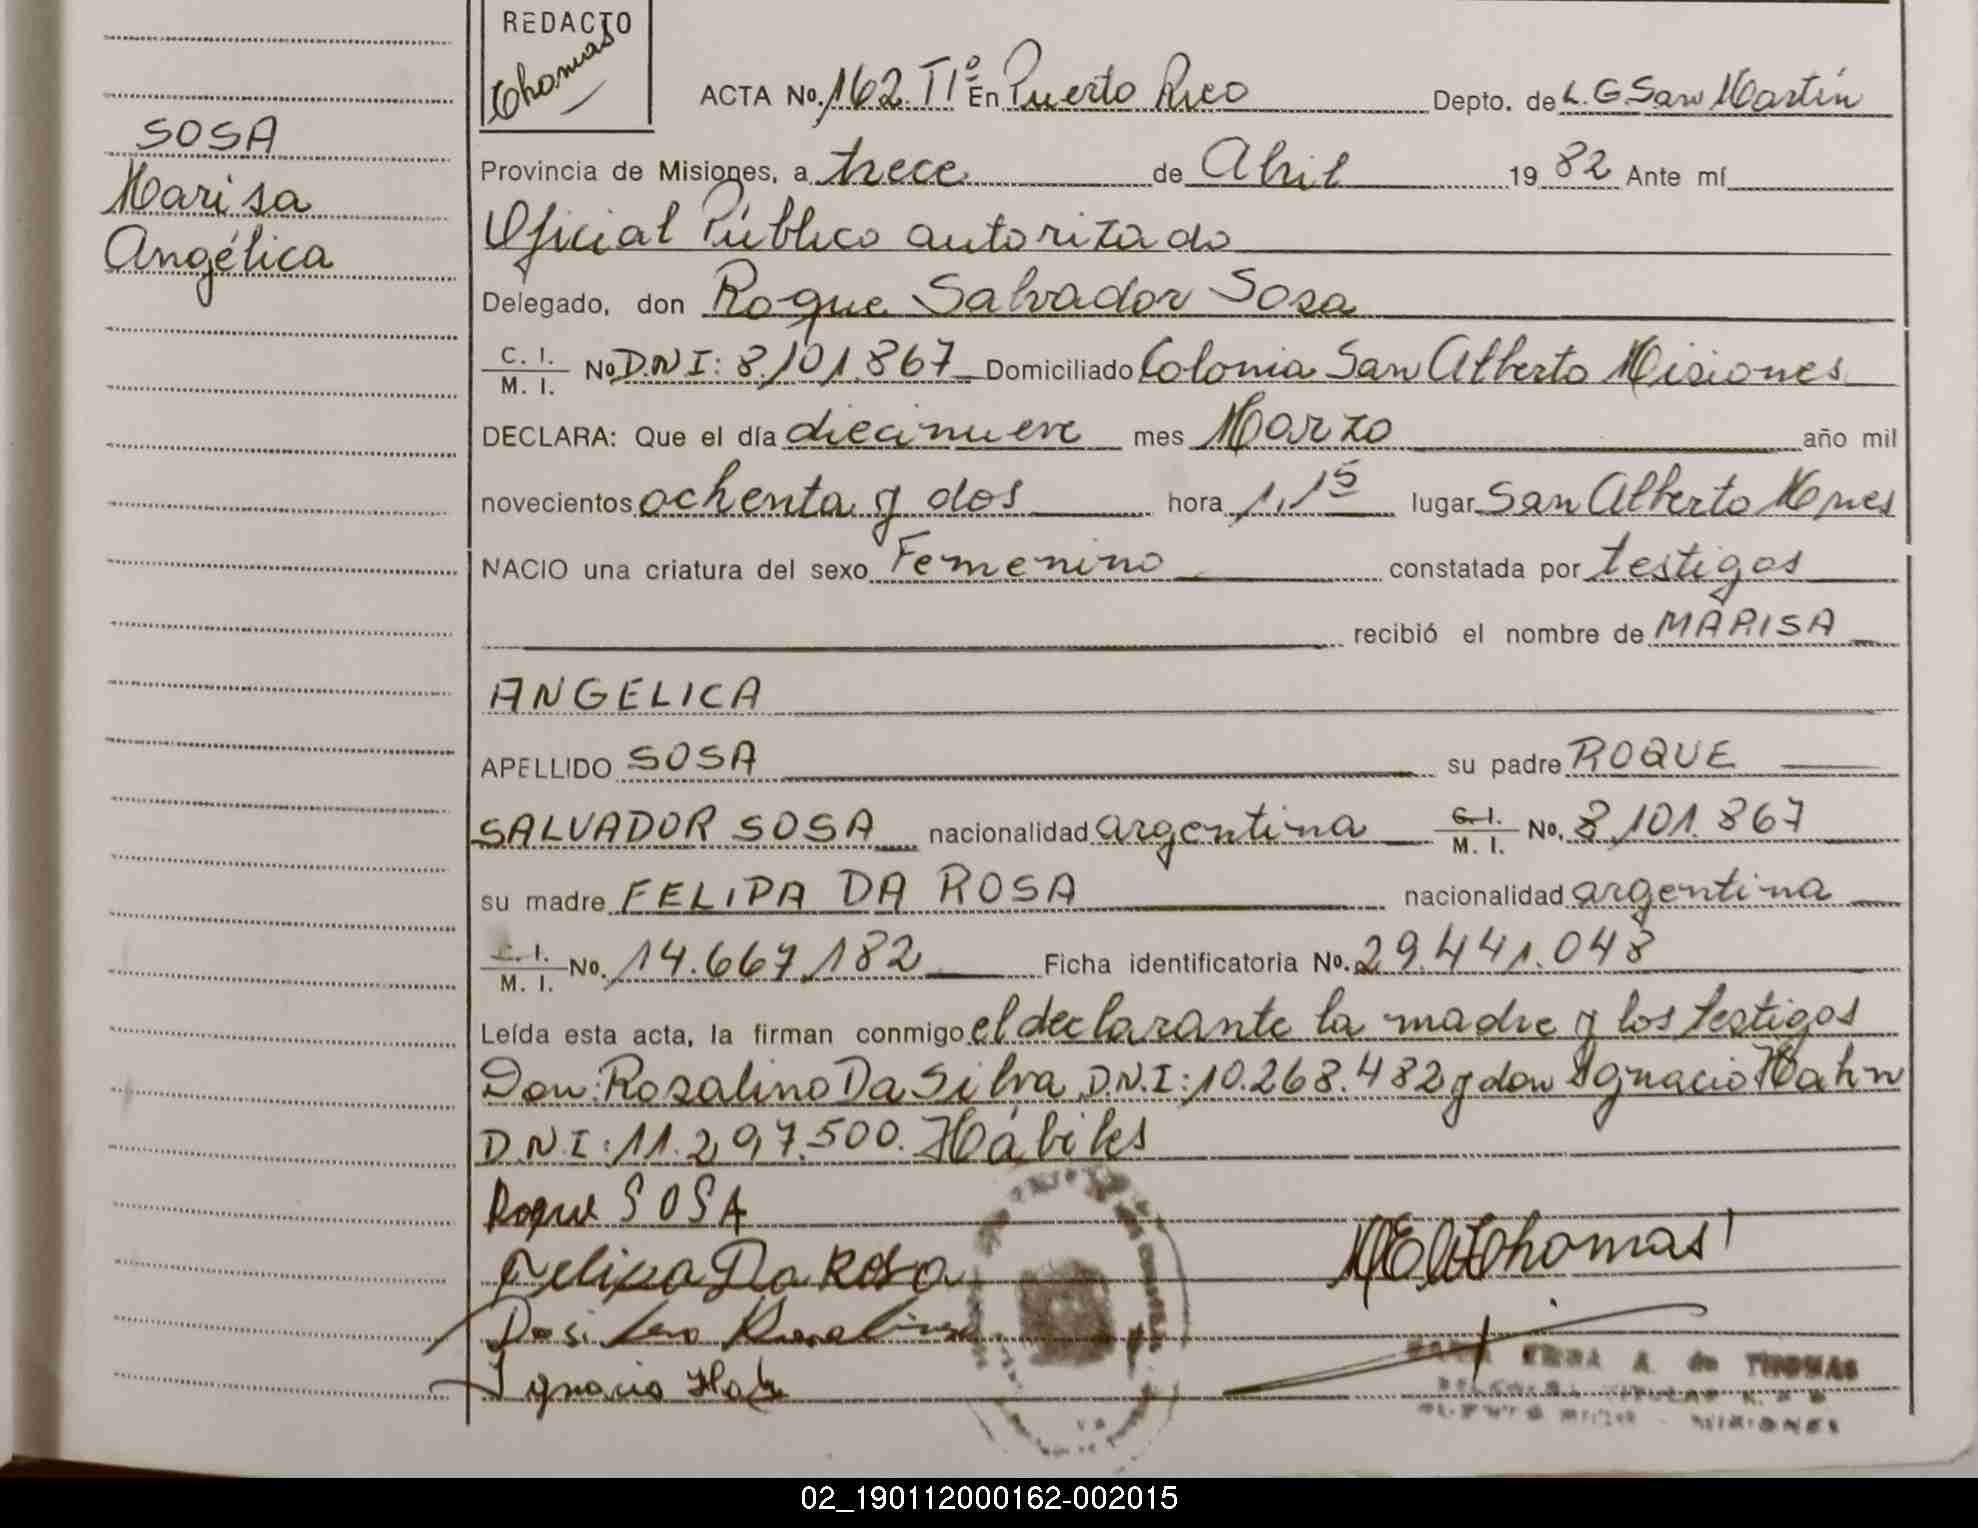 REDACTO
Thomas
ACTA No. 162. Tº Iº En Puerto Rico Depto. de L. G. San Martín
SOSA
Marisa
Angélica
Provincia de Misiones, a trece de Abril 1982 Ante mí
Oficial Público autorizado
Delegado, don Roque Salvador Sosa
C. I. / M. I. No D.N.I: 8.101.867 Domiciliado Colonia San Alberto Misiones
DECLARA: Que el día diecinueve mes Marzo año mil
novecientos ochenta y dos hora 1,15 lugar San Alberto Mnes
NACIO una criatura del sexo Femenino constatada por testigos
recibió el nombre de MARISA
ANGELICA
APELLIDO SOSA su padre ROQUE
SALVADOR SOSA nacionalidad argentina C. I. / M. I. No. 8.101.867
su madre FELIPA DA ROSA nacionalidad argentina
C. I. / M. I. No. 14.667.182 Ficha identificatoria No. 29.441.048
Leída esta acta, la firman conmigo el declarante la madre y los testigos
Don: Rosalino Da Silva D.N.I: 10.268.482 y don Ignacio Hahn
D.N.I: 11.297.500. Hábiles
Roque SOSA
Felipa Da Rosa
Thomas
Ignacio Hahn
A. de THOMAS
MISIONES
02_190112000162-002015